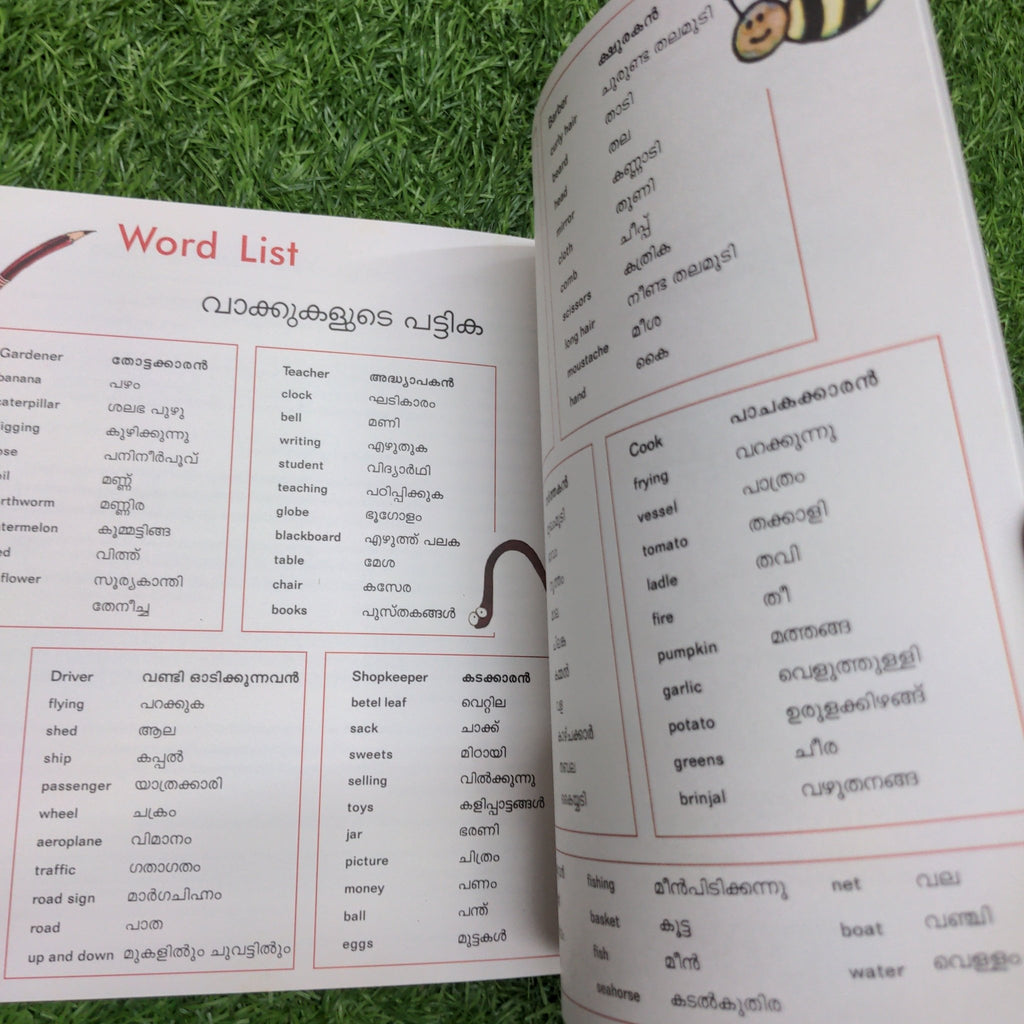 Word List
വാക്കുകളുടെ പട്ടിക
Gardener തോട്ടക്കാരൻ
banana പഴം
caterpillar ശലഭ പുഴു
igging കുഴിക്കുന്നു
ose പനിനീർപൂവ്
il മണ്ണ്
rthworm മണ്ണിര
termelon കുമ്മട്ടിങ്ങ
ed വിത്ത്
flower സൂര്യകാന്തി
തേനീച്ച
Teacher അദ്ധ്യാപകൻ
clock ഘടികാരം
bell മണി
writing എഴുതുക
student വിദ്യാർഥി
teaching പഠിപ്പിക്കുക
globe ഭൂഗോളം
blackboard എഴുത്ത് പലക
table മേശ
chair കസേര
books പുസ്തകങ്ങൾ
Driver വണ്ടി ഓടിക്കുന്നവൻ
flying പറക്കുക
shed ആല
ship കപ്പൽ
passenger യാത്രക്കാരി
wheel ചക്രം
aeroplane വിമാനം
traffic ഗതാഗതം
road sign മാർഗചിഹ്നം
road പാത
up and down മുകളിൽും ചുവട്ടിൽും
Shopkeeper കടക്കാരൻ
betel leaf വെറ്റില
sack ചാക്ക്
sweets മിഠായി
selling വിൽക്കുന്നു
toys കളിപ്പാട്ടങ്ങൾ
jar ഭരണി
picture ചിത്രം
money പണം
ball പന്ത്
eggs മുട്ടകൾ
Barber ക്ഷുരകൻ
curly hair ചുരുണ്ട തലമുടി
beard താടി
head തല
mirror കണ്ണാടി
cloth തുണി
comb ചീപ്പ്
scissors കത്രിക
long hair നീണ്ട തലമുടി
moustache മീശ
hand കൈ
Cook പാചകക്കാരൻ
frying വറക്കുന്നു
vessel പാത്രം
tomato തക്കാളി
ladle തവി
fire തീ
pumpkin മത്തങ്ങ
garlic വെളുത്തുള്ളി
potato ഉരുളക്കിഴങ്ങ്
greens ചീര
brinjal വഴുതനങ്ങ
fishing മീൻപിടിക്കന്നു net വല
basket കൂട്ട boat വഞ്ചി
fish മീൻ water വെള്ളം
seahorse കടൽകുതിര